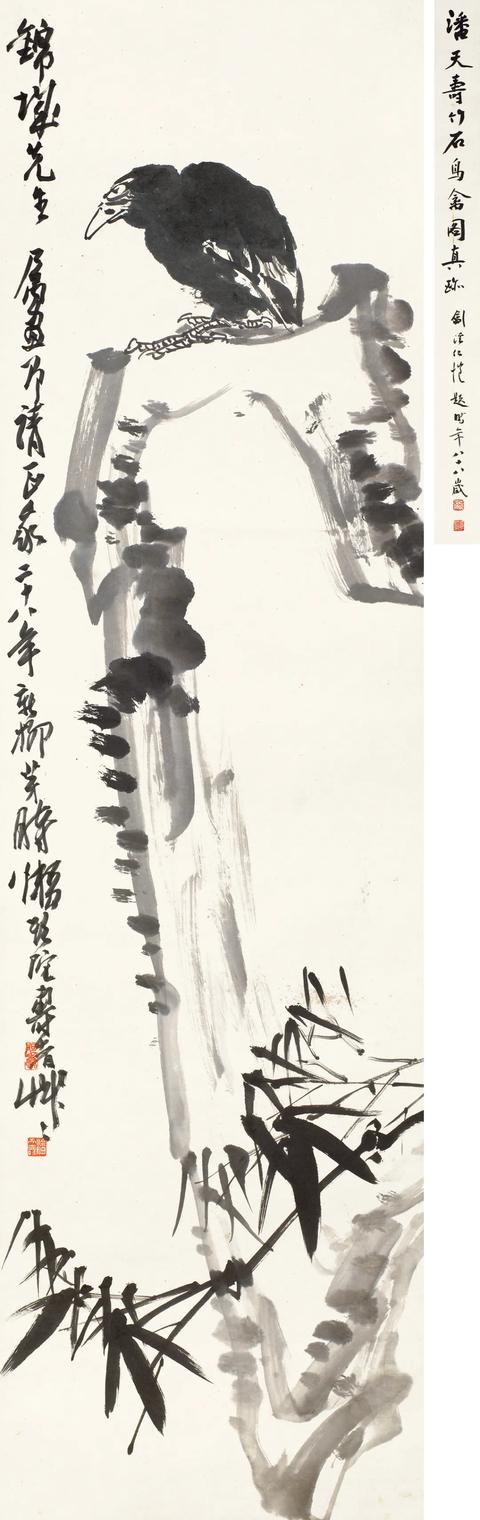 錦城先生屬畫即請正家二十八年新柳芽時懶頭陀壽者草草
潘天壽竹石鳥禽圖真跡 劍溪仁愷題 時年八十八歲